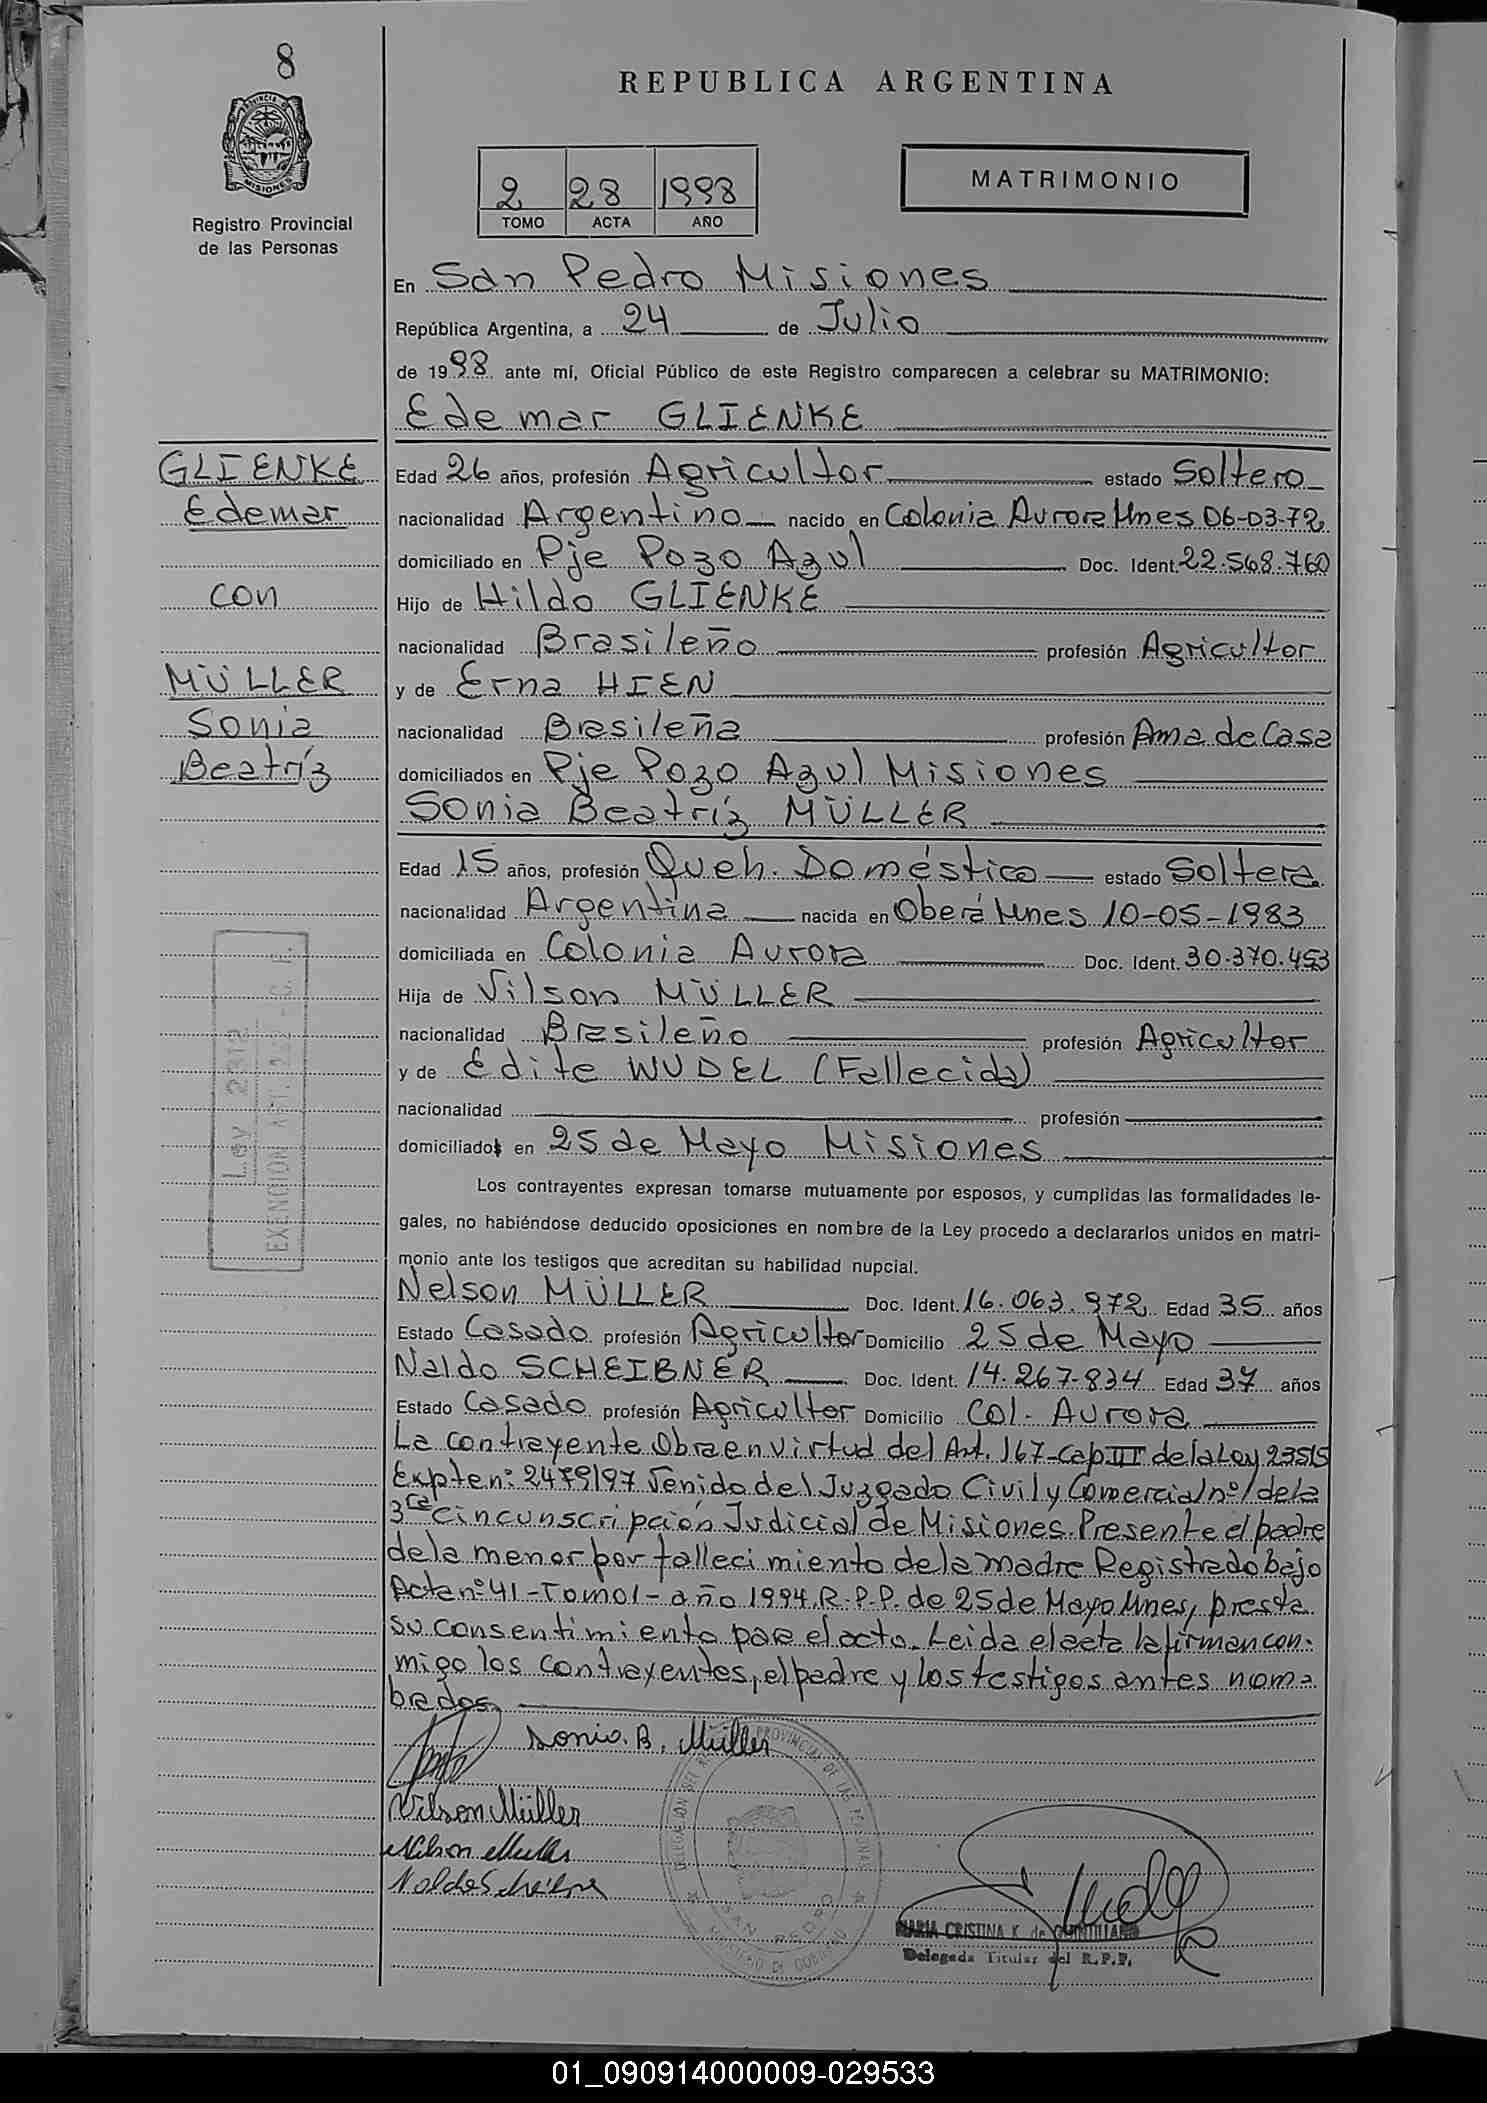 8
REPUBLICA ARGENTINA
PROVINCIA DE MISIONES
Registro Provincial
de las Personas
2 28 1998
TOMO ACTA AÑO
MATRIMONIO
En San Pedro Misiones
República Argentina, a 24 de Julio
de 1998 ante mí, Oficial Público de este Registro comparecen a celebrar su MATRIMONIO:
Edemar GLIENKE
GLIENKE
Edemar
con
MÜLLER
Sonia
Beatríz
Edad 26 años, profesión Agricultor estado Soltero
nacionalidad Argentino nacido en Colonia Aurora Mnes 06-03-72
domiciliado en Pje Pozo Azul Doc. Ident. 22.568.760
Hijo de Hildo GLIENKE
nacionalidad Brasileño profesión Agricultor
y de Erna HIEN
nacionalidad Brasileña profesión Ama de Casa
domiciliados en Pje Pozo Azul Misiones
Sonia Beatríz MÜLLER
Edad 15 años, profesión Queh. Doméstico estado Soltera
nacionalidad Argentina nacida en Oberá Mnes 10-05-1983
domiciliada en Colonia Aurora Doc. Ident. 30.370.453
Hija de Vilson MÜLLER
nacionalidad Brasileño profesión Agricultor
y de Edite WUDEL (Fallecida)
nacionalidad profesión
domiciliados en 25 de Mayo Misiones
Ley 2312
EXENCION ART.
Los contrayentes expresan tomarse mutuamente por esposos, y cumplidas las formalidades le-
gales, no habiéndose deducido oposiciones en nombre de la Ley procedo a declararlos unidos en matri-
monio ante los testigos que acreditan su habilidad nupcial.
Nelson MÜLLER Doc. Ident. 16.063.972 Edad 35 años
Estado Casado profesión Agricultor Domicilio 25 de Mayo
Naldo SCHEIBNER Doc. Ident. 14.267.834 Edad 37 años
Estado Casado profesión Agricultor Domicilio Col. Aurora
La contrayente Obra en virtud del Art. 167-Cap III de la Ley 23515
Expte n: 2479/97 Venido del Juzgado Civil y Comercial nº1 de la
3ra Cincunscripción Judicial de Misiones. Presente el padre
de la menor por fallecimiento de la madre Registrado bajo
Acta nº 41-Tomo 1-año 1994, R.P.P. de 25 de Mayo Mnes, presta
su consentimiento para el acto. Leida el acta la firman con-
migo los contrayentes, el padre y los testigos antes nom-
brados
Sonia. B. Müller
Vilson Müller
Nelson Muller
Naldo Scheibner
DELEGACION DEL REGISTRO PROVINCIAL DE LAS PERSONAS
SAN PEDRO
MINISTERIO DE GOBIERNO
MARIA CRISTINA K. de QUINTILIANO
Delegada Titular del R.P.P.
01_090914000009-029533